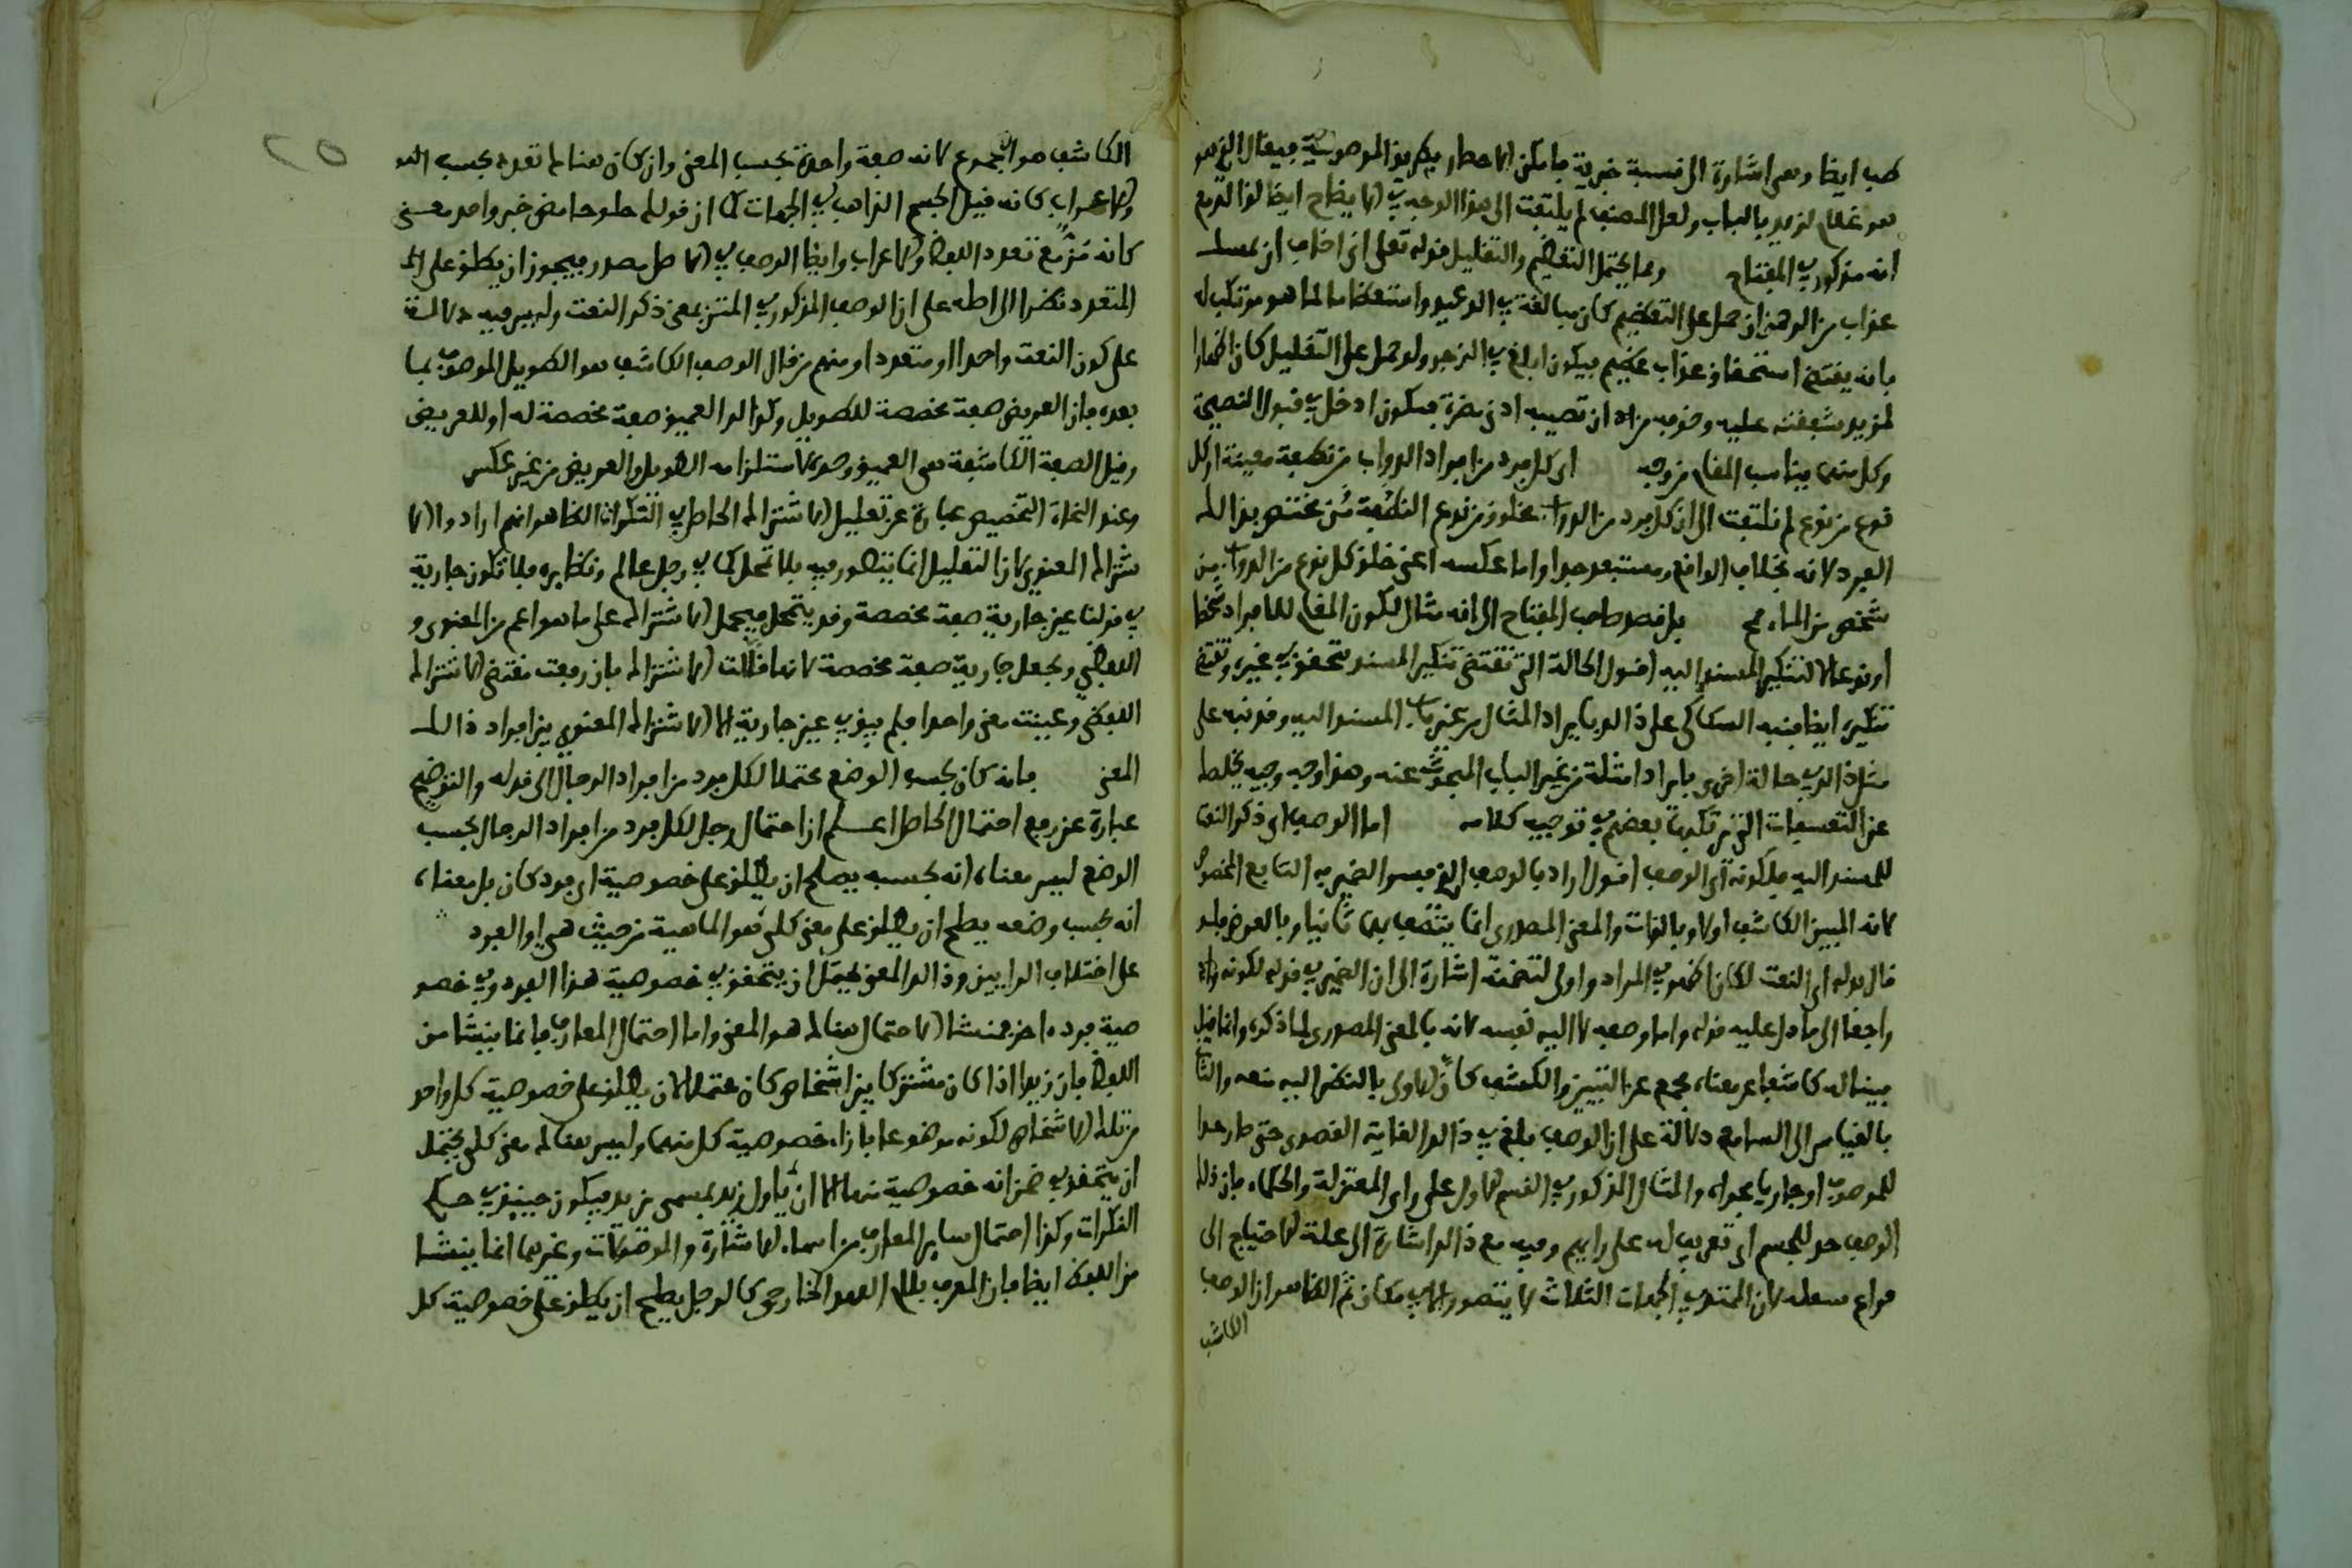 طب ايضا وهي اشارة الى نسبة خبرية فامكن الاحضار بطريق الموصولية فيقال الذي هو
هو غلام لزيد بالباب ولعل المصنف لم يلتفت الى هذا الوجه في الايضاح ايضا لذا لم
انه مذكور في المفتاح ومما يحتمل التعظيم والتقليل قوله تعلى اني اخاف ان يمسك
عذاب من الرحمن ان حمل على التعظيم كان مبالغة في الوعيد واستعظاما لما هو مرتكب له
بانه يقتضي استحقاق عذاب عظيم فيكون ابلغ في الزجر ولو حمل على التقليل كان اظهارا
لمزيد شفقته عليه وخوفه من ان تصيبه ادنى مضرة فيكون ادخل في قبول النصيحة
وكل منهما يناسب المقام من وجه اي كل فرد من افراد الدواب من نطفة معينة او كل
نوع من نوع لم يلتفت الى ان كل فرد من الدواب مخلوق من نوع النطفة من مختص بذلك
الفرد لانه بخلاف الواقع ومستبعد جدا واما عكسه اعني خلق كل نوع من الدواب من
شخص من الماء فمح بل قصد صاحب المفتاح الى انه مثال لكون المقام للافراد شخصا
او نوعا لا لتنكير المسند اليه اقول الحالة التي تقتضي تنكير المسند تتحقق في غيره وتقتضي
تنكيره ايضا فنبه السكاكي على ذلك بايراد المثال من غير باب المسند اليه وقد نبه على
مثل ذلك في حالة اخرى بايراد امثلة من غير الباب المبحوث عنه وهذا وجه وجيه يخلصك
عن التعسفات التي يرتكبها بعضهم في توجيه كلامه اما الوصف اي ذكر النعت
للمسند اليه فلكونه اي الوصف اقول اراد بالوصف الذي فسر الضمير به التابع المخصوص
لانه المبين الكاشف اولا وبالذات والمعنى المصدري انما يتصف بهما ثانيا وبالعرض فلو
قال بدله اي النعت لكان اظهر في المراد واولى لتضمنه اشارة الى ان الضمير في قوله لكونه
راجعا الى ما دل عليه قوله واما وصفه لا اليه نفسه لانه بالمعنى المصدري لما ذكره وانما قيل
مبينا له كاشفا عن معناه بجمع عن التبيين والكشف كان الاولى بالنظر اليه نفسه والثاني
بالقياس الى السامع دلالة على ان الوصف بلغ في ذلك الغاية القصوى حتى صار حدا
للموصوف او جاريا مجراه والمثال المذكور في القسم الاول على راي المعتزلة والحكماء فان ذلك
الوصف حد للجسم اي تعريف له على رايهم وفيه مع ذلك اشارة الى علة الاحتياج الى
فراغ يشغله لان الممتد في الجهات الثلاث لا يتصور الا في مكان ثم الظاهر ان الوصف
الكاشف
الكاشف هو المجموع لانه صفة واحدة بحسب المعنى وان كان هناك تعدد بحسب اللفظ
والاعراب كانه قيل الجسم الذاهب في الجهات كما ان قولك حلو حامض خبر واحد بمعنى
كانه مز مع تعدد اللفظ والاعراب وايضا الوصف في الاصل مصدر فيجوز ان يطلق على
المتعدد نظرا الى اصله على ان الوصف المذكور في المتن بمعنى ذكر النعت وليس فيه دلالة
على كون النعت واحدا او متعددا ومنهم من قال الوصف الكاشف هو الطويل الموصوف بما
بعده فان العريض صفة مخصصة للطويل وكذا العميق صفة مخصصة له او للعريض
وقيل الصفة الكاشفة هي العميق وحده لاستلزامه الطويل والعريض من غير عكس
وعند النحاة التخصيص عبارة عن تقليل الاشتراك الحاصل في النكرات الظاهر انهم ارادوا الا
شتراك المعنوي لان التقليل انما يتصور فيه بلا تمحل كما في رجل عالم ونظايره فلا تكون جارية
في قولنا عين جارية صفة مخصصة وقد يتمحل فيحمل الاشتراك على ما هو اعم من المعنوي و
اللفظي ويجعل جارية صفة مخصصة لانها قللت الاشتراك بان رفعت مقتضى الاشتراك
اللفظي وعينت معنى واحدا فلم يبق في عين جارية الا الاشتراك المعنوي بين افراد ذلك
المعنى فانه كان بحسب الوضع محتملا لكل فرد من افراد الرجال الى قوله والتوضيح
عبارة عن رفع احتمال الحاصل اعلم ان احتمال رجل لكل فرد من افراد الرجال بحسب
الوضع ليس معناه انه بحسبه يصلح ان يطلق على خصوصية اي فرد كان بل معناه
انه بحسب وضعه يصلح ان يطلق على معنى كلي هو الماهية من حيث هي او الفرد
على اختلاف الرايين وذلك المعنى يحتمل ان يتحقق في خصوصية هذا الفرد وفي خصو
صية فرد اخر فمنشا الاحتمال هنالك هو المعنى واما احتمال المعارف فانما ينشا من
اللفظ فان زيدا اذا كان مشتركا بين اشخاص كان محتملا لان يطلق على خصوصية كل واحد
من تلك الاشخاص لكونه موضوعا بازاء خصوصية كل منهما وليس هنالك معنى كلي يحتمل
ان يتحقق في ضمن انه خصوصية منها الا ان ياول زيد بمسمى بزيد فيكون حينئذ في حكم
النكرات وكذا احتمال ساير المعارف من اسماء الاشارة والموصولات وغيرهما انما ينشا
من اللفظ ايضا فان المعرف بلام العهد الخارجي كالرجل يصلح ان يطلق على خصوصية كل